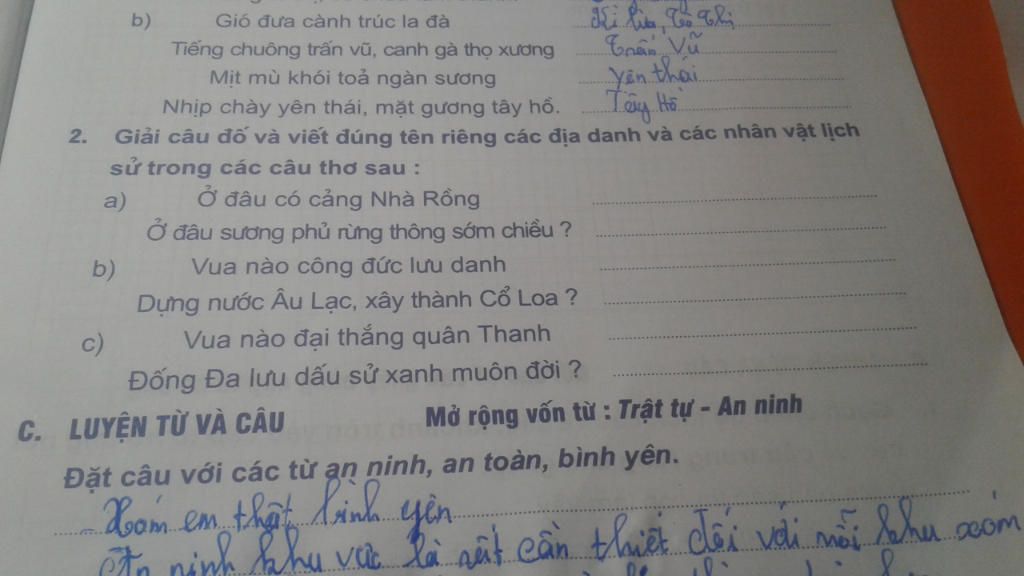 b) Gió đưa cành trúc la đà
Tiếng chuông trấn vũ, canh gà thọ xương Trấn Vũ
Mịt mù khói toả ngàn sương Yên thái
Nhịp chày yên thái, mặt gương tây hồ. Tây Hồ
2. Giải câu đố và viết đúng tên riêng các địa danh và các nhân vật lịch
sử trong các câu thơ sau :
a) Ở đâu có cảng Nhà Rồng
Ở đâu sương phủ rừng thông sớm chiều ?
b) Vua nào công đức lưu danh
Dựng nước Âu Lạc, xây thành Cổ Loa ?
c) Vua nào đại thắng quân Thanh
Đống Đa lưu dấu sử xanh muôn đời ?
C. LUYỆN TỪ VÀ CÂU Mở rộng vốn từ : Trật tự - An ninh
Đặt câu với các từ an ninh, an toàn, bình yên.
- Xóm em thật bình yên
An ninh khu vực là rất cần thiết đối với mỗi khu xóm